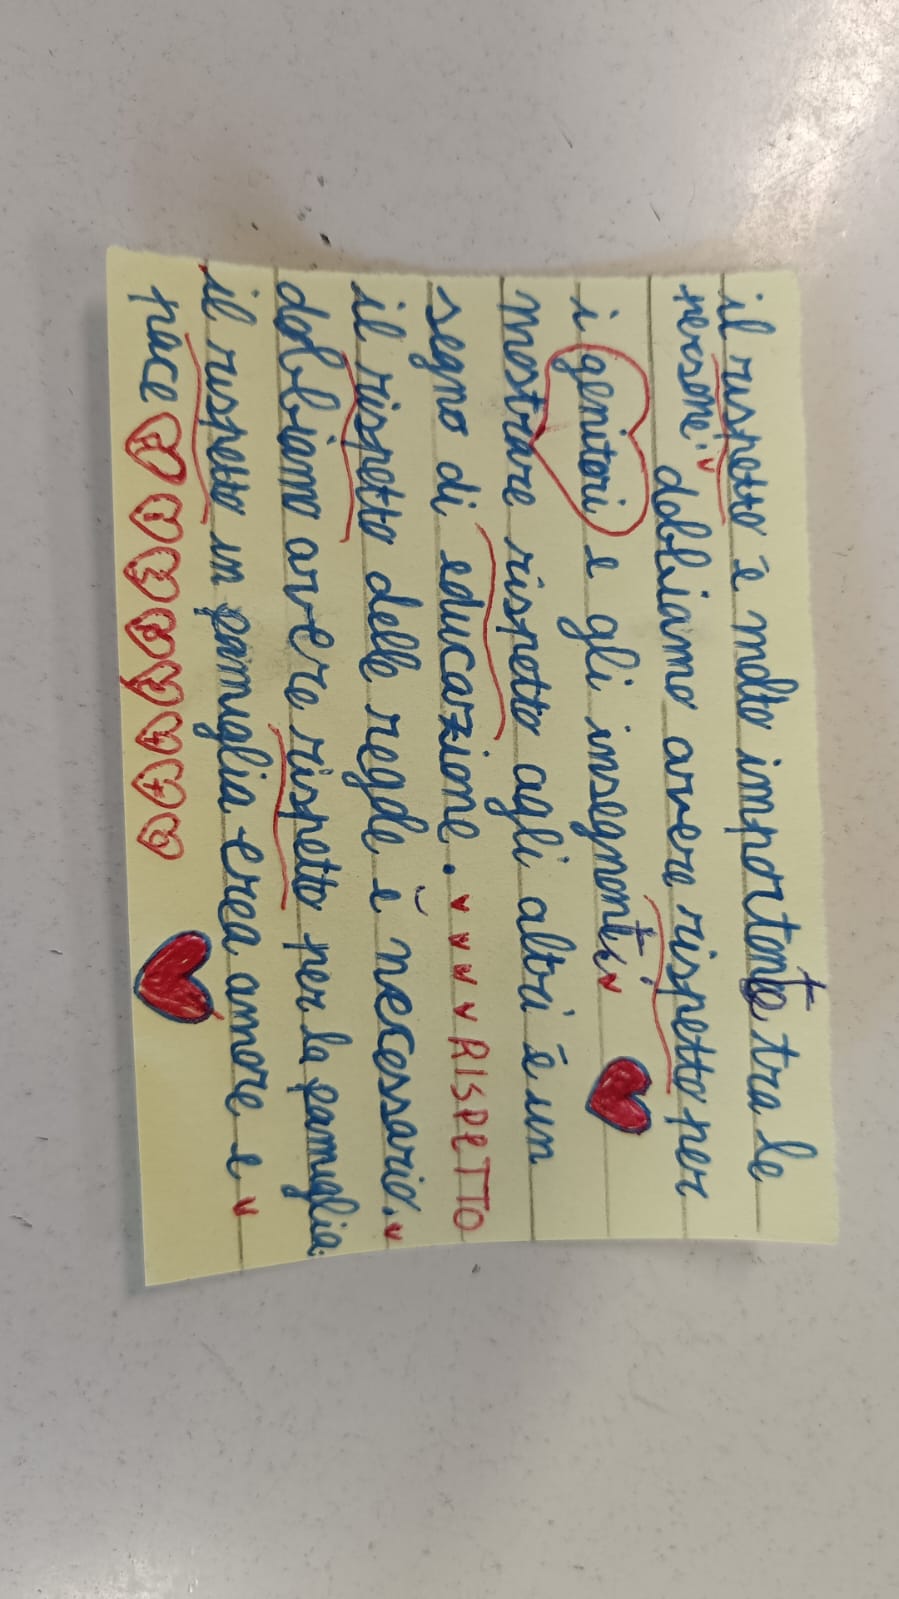 il rispetto è molto importante tra le
persone. dobbiamo avere rispetto per
i genitori e gli insegnanti
mostrare rispetto agli altri è un
segno di educazione. RISPETTO
il rispetto delle regole è necessario.
dobbiamo avere rispetto per la famiglia.
il rispetto in famiglia crea amore e
pace